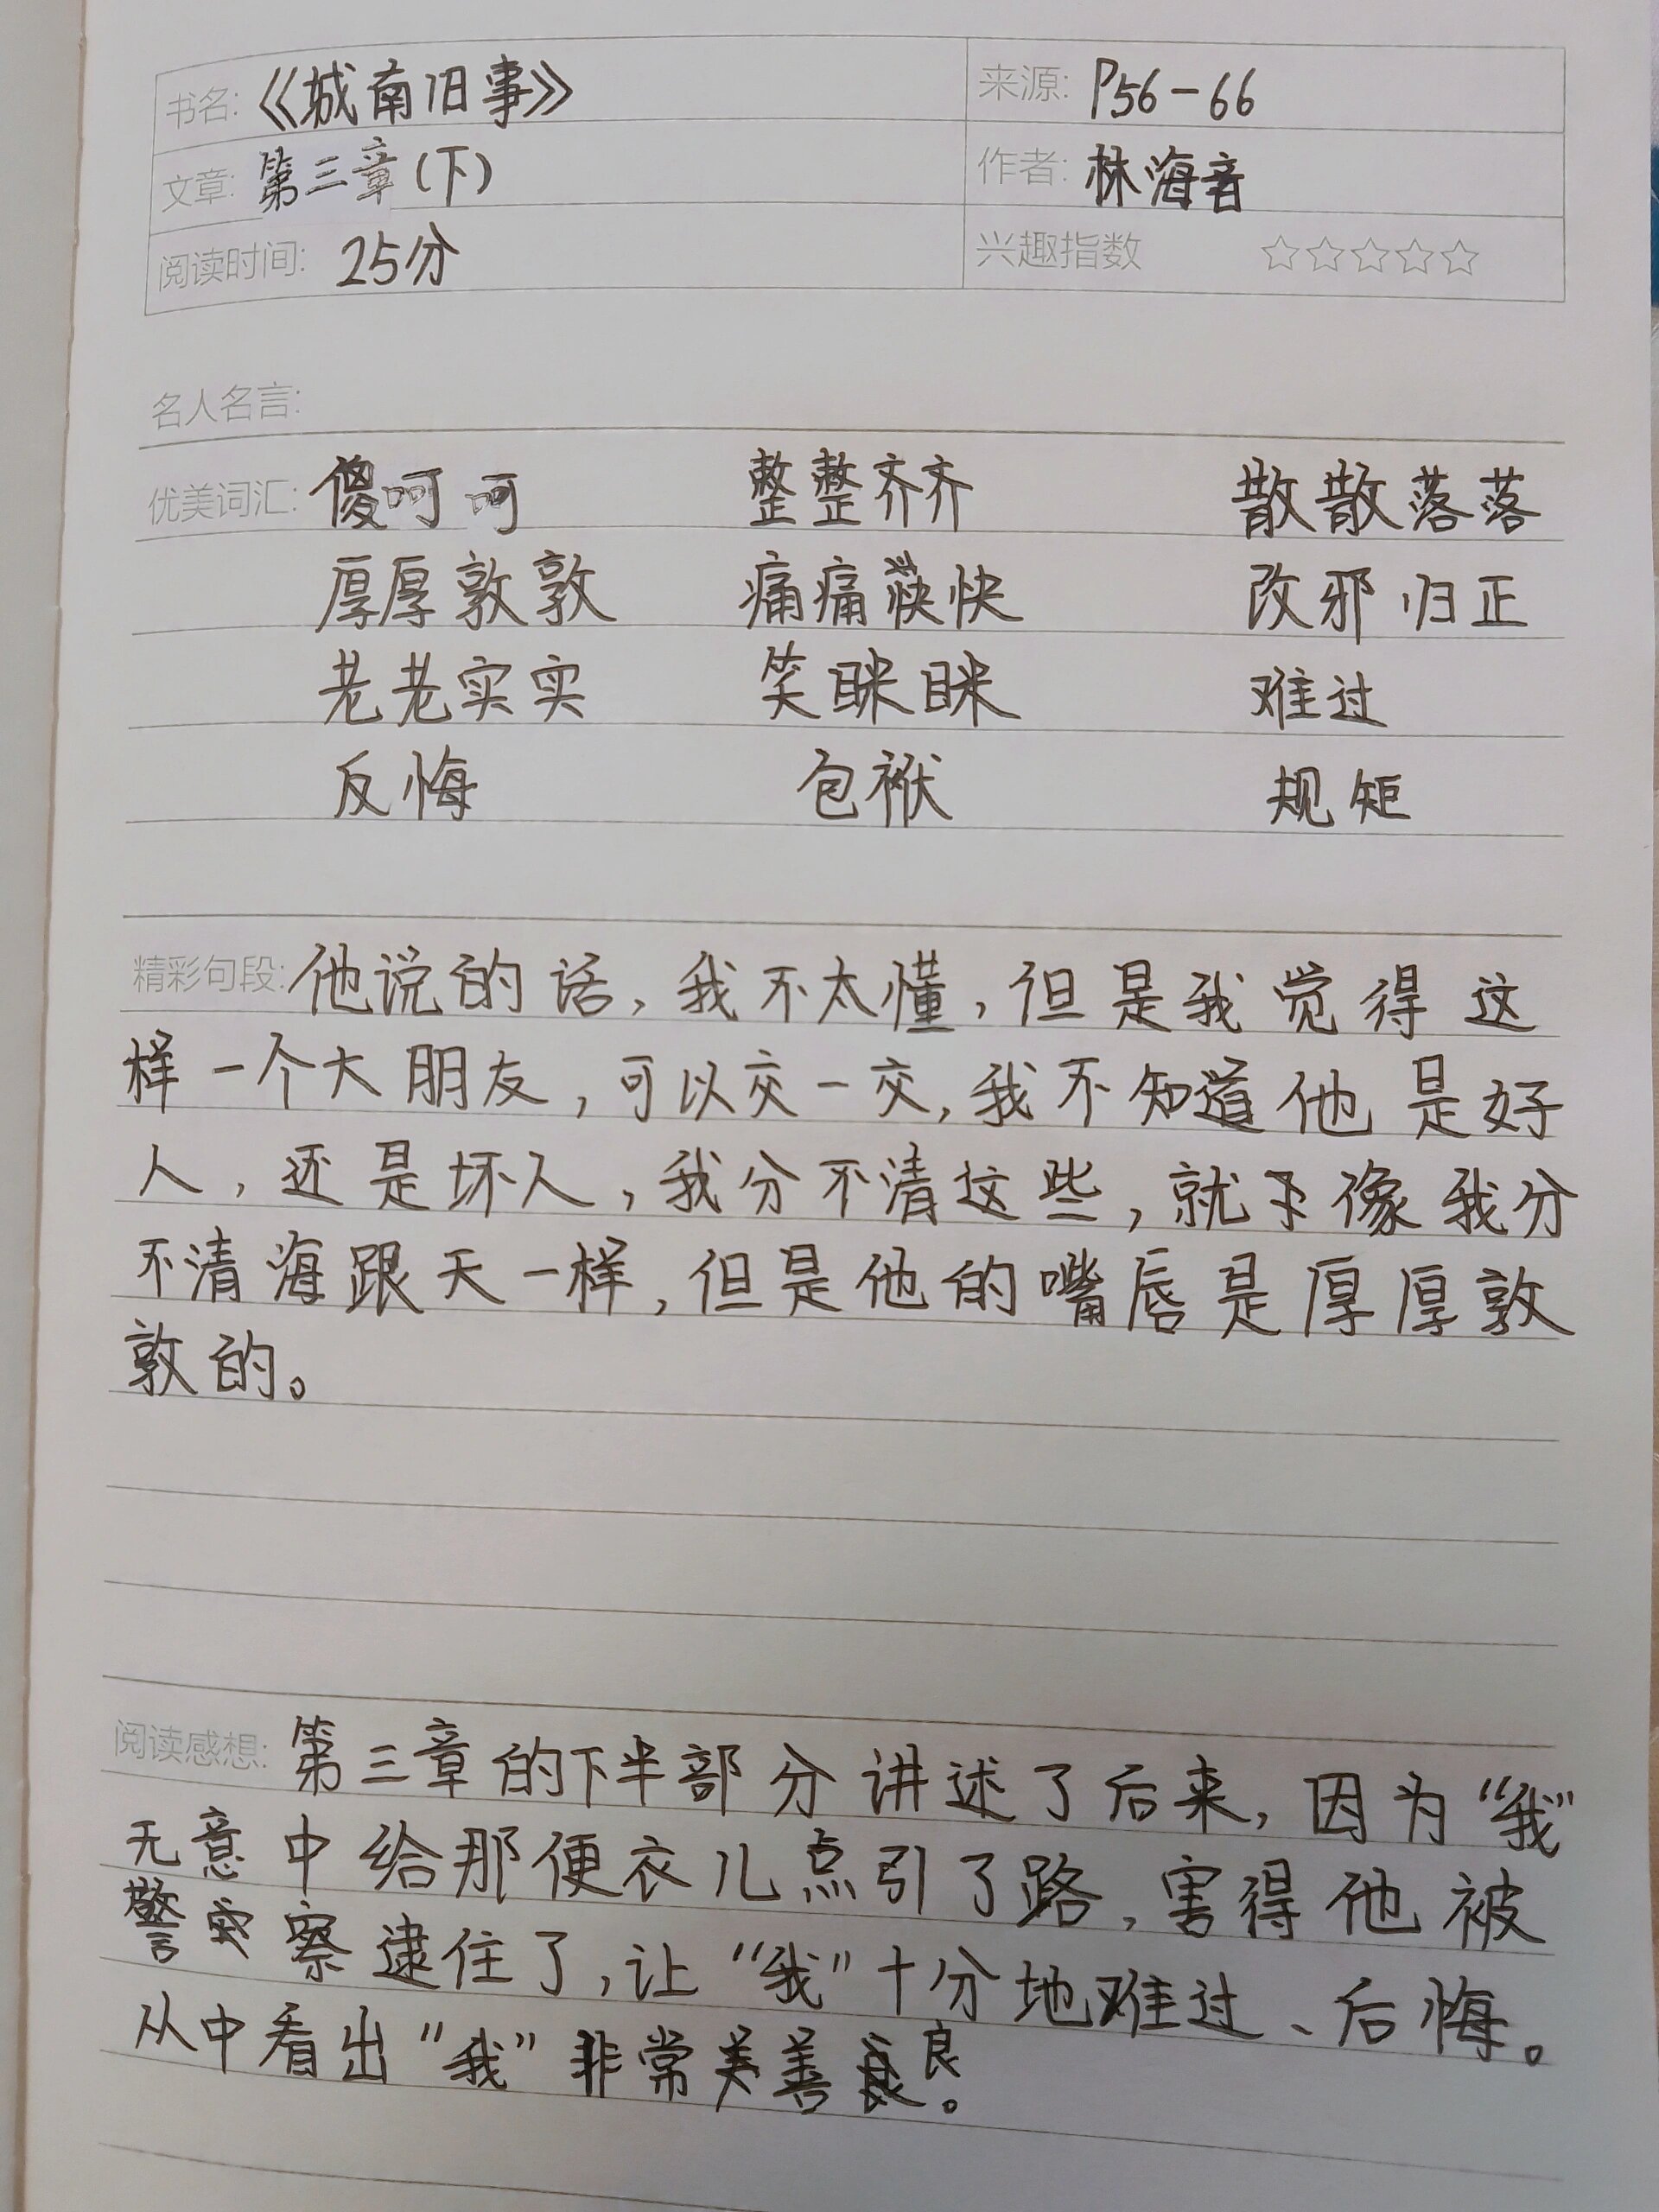 书名: 《城南旧事》 来源: P56-66
文章: 第三章(下) 作者: 林海音
阅读时间: 25分 兴趣指数 ☆☆☆☆☆
名人名言:
优美词汇: 傻呵呵 整整齐齐 散散落落
厚厚敦敦 痛痛快快 改邪归正
老老实实 笑眯眯 难过
反悔 包袱 规矩
精彩句段: 他说的话,我不太懂,但是我觉得这
样一个大朋友,可以交一交,我不知道他是好
人,还是坏人,我分不清这些,就像我分
不清海跟天一样,但是他的嘴唇是厚厚敦
敦的。
阅读感想: 第三章的下半部分讲述了后来,因为“我”
无意中给那便衣儿点引了路,害得他被
警察逮住了,让“我”十分地难过、后悔。
从中看出“我”非常善良。